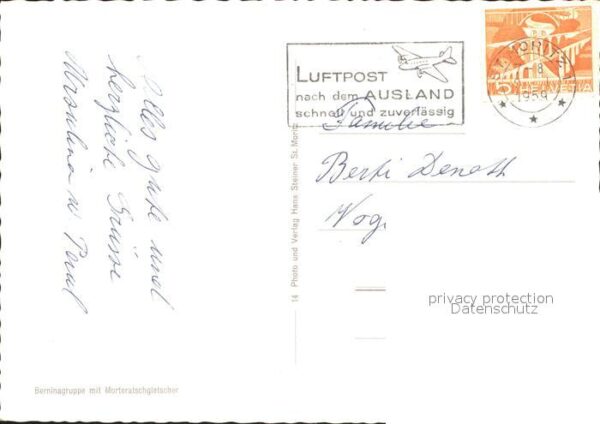 Alles gute und
herzliche Grüsse
Mrsulina u Paul
LUFTPOST
nach dem AUSLAND
schnell und zuverlässig
ST. MORITZ 1
-8
1959
5 HELVETIA
Familie
Berti Denoth
14 Photo und Verlag Hans Steiner St. Moritz
privacy protection
Datenschutz
Berninagruppe mit Morteratschgletscher